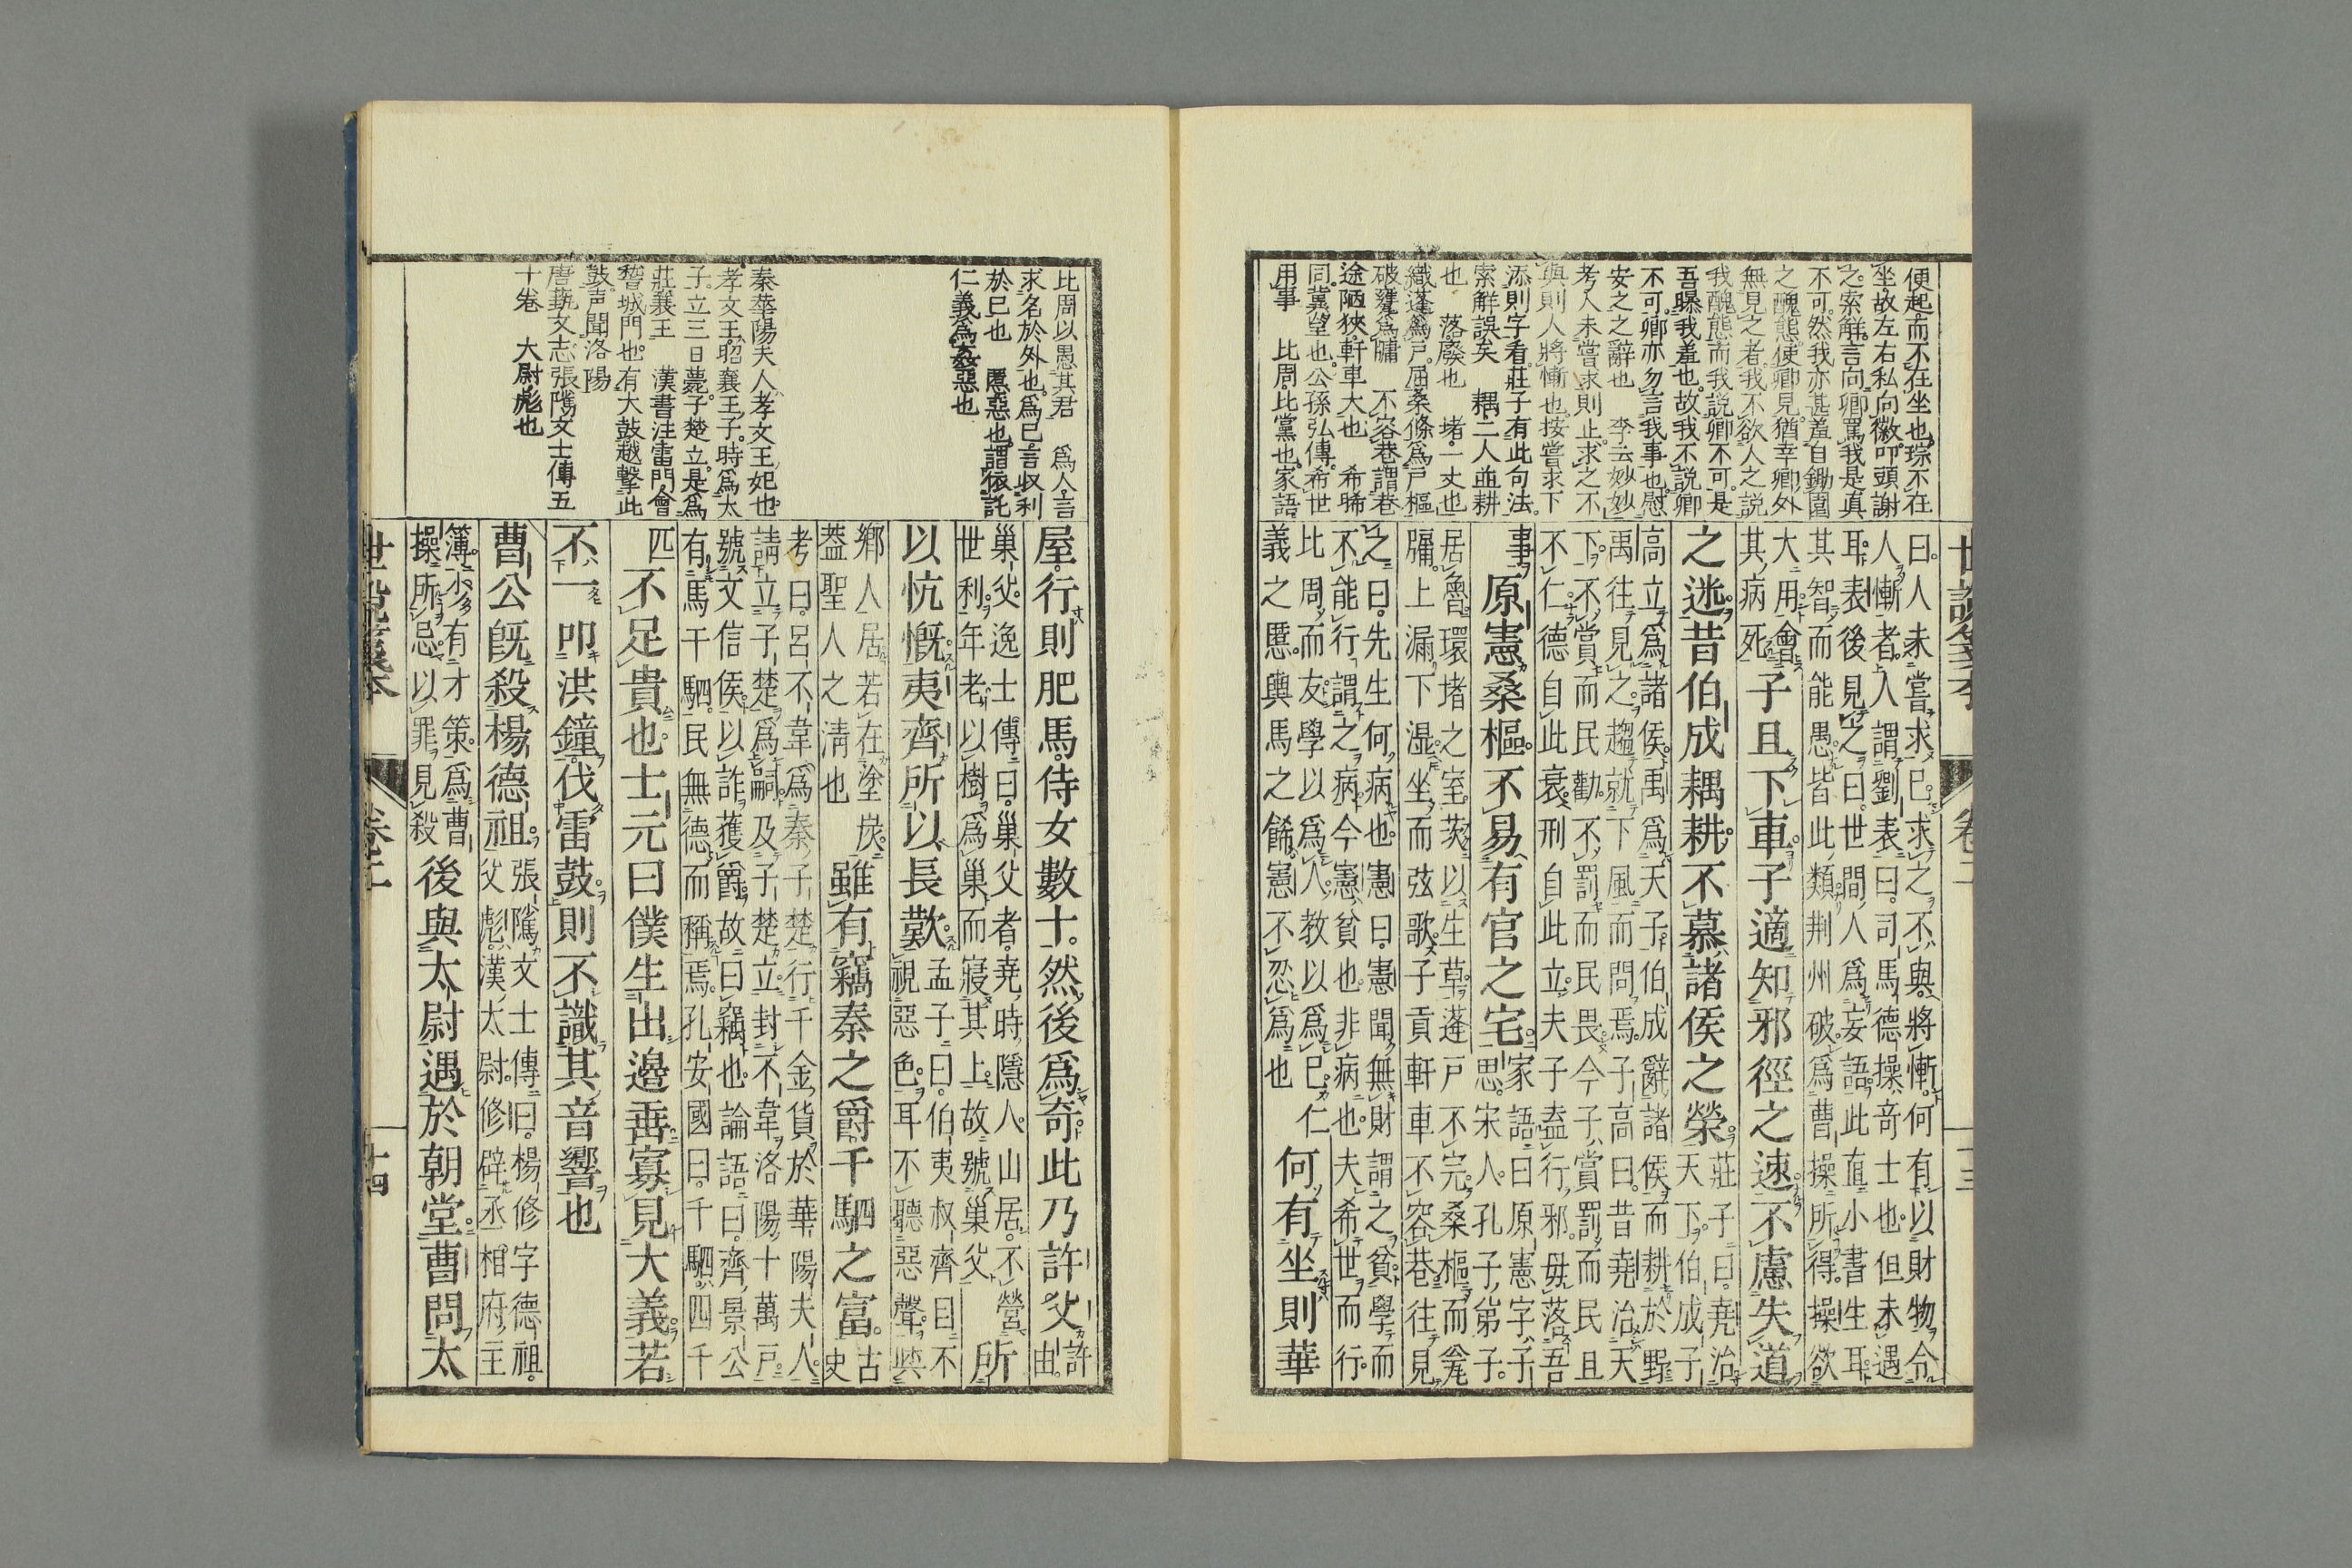 便起而不在坐也琮不在
坐故左右私向徽叩頭謝
之索解言向卿罵我是真
不可然我亦甚羞自鋤園
之醜態使卿見猶幸卿外
無見之者我不欲人之説
我醜態而我説卿不可是
吾曝我羞也故我不説卿
不可卿亦勿言我事也慰
安之之辭也　李云妙妙
考人未嘗求則止求之不
與則人將慚也按嘗求下
添則字看莊子有此句法
索解誤矣　耦二人並耕
也　落廢也　堵一丈也
織蓬爲戸屈桑條爲戸樞
破甕爲牖　不容巷謂巷
途陋狹軒車大也　希晞
同冀望也公孫弘傳希世
用事　比周比黨也家語
曰人未嘗求己求之不與將慚何有以財物令
人慚者人謂劉表曰司馬德操奇士也但未遇
耳表後見之曰世間人爲妄語此直小書生耳
其智而能愚皆此類荆州破爲曹操所得操欲
大用會
其病死
子且下車子適知邪徑之速不慮失道
之迷昔伯成耦耕不慕諸侯之榮
莊子曰堯治
天下伯成子
高立爲諸侯禹爲天子伯成辭諸侯而耕於野
禹往見之趨就下風而問焉子高曰昔堯治天
下不賞而民勸不罰而民畏今子賞罰而民且
不仁德自此衰刑自此立夫子盍行邪毋落吾
事
原憲桑樞不易有官之宅
家語曰原憲字子
思宋人孔子弟子
居魯環堵之室茨以生草蓬戸不完桑樞而瓮
牖上漏下湿坐而弦歌子貢軒車不容巷往見
之曰先生何病也憲曰憲聞無財謂之貧學而
不能行謂之病今憲貧也非病也夫希世而行
比周而友學以爲人教以爲己仁
義之慝輿馬之餙憲不忍爲也
何有坐則華
世説箋本　卷二　十三
比周以愚其君　爲人言
求名於外也爲己言収利
於己也　慝惡也謂依託
仁義爲姦惡也
秦華陽夫人孝文王妃也
孝文王昭襄王子時爲太
子立三日薨子楚立是爲
莊襄王　漢書注雷門會
稽城門也有大鼓越撃此
鼓声聞洛陽
唐藝文志張隲文士傳五
十卷　大尉彪也
屋行則肥馬侍女數十然後爲奇此乃許父
許
由
巢父逸士傳曰巢父者堯時隱人山居不營
世利年老以樹爲巢而寢其上故號巢父
所
以忼慨夷齊所以長歎
孟子曰伯夷叔齊目不
視惡色耳不聽惡聲與
鄉人居若在塗炭
葢聖人之清也
雖有竊秦之爵千駟之富
古
史
考曰呂不韋爲秦子楚行千金貨於華陽夫人
請立子楚爲嗣及子楚立封不韋洛陽十萬戸
號文信侯以詐獲爵故曰竊也論語曰齊景公
有馬千駟民無德而稱焉孔安國曰千駟四千
匹
不足貴也士元曰僕生出邊垂寡見大義若
不一叩洪鐘伐雷鼓則不識其音響也
曹公既殺楊德祖
張隲文士傳曰楊修字德祖
父彪漢太尉修辟丞相府主
簿少有才策爲曹
操所忌以罪見殺
後與太尉遇於朝堂曹問太
世説箋本　卷二　十四